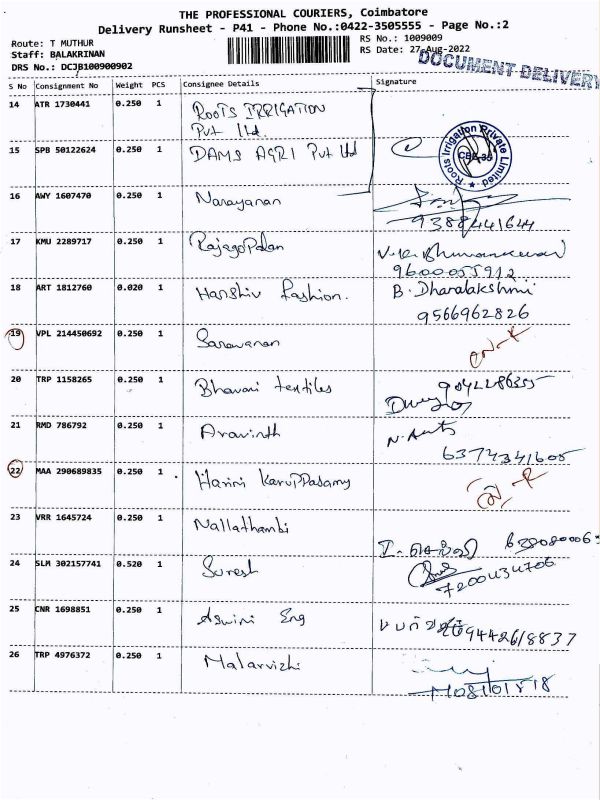 THE PROFESSIONAL COURIERS, Coimbatore
Delivery Runsheet - P41 - Phone No.:0422-3505555 - Page No.:2
Route: T MUTHUR
RS No.: 1009009
Staff: BALAKRINAN
RS Date: 27-Aug-2022
DRS No.: DCJB100900902
DOCUMENT DELIVERY
S No Consignment No Weight PCS Consignee Details Signature
14 ATR 1730441 0.250 1 Roots IRRIGATION
Pvt Ltd.
15 SPB 50122624 0.250 1 DAMS AGRI Pvt Ltd
Roots Irrigation Private Limited
CBE-35
16 AWY 1607470 0.250 1 Narayanan
9388441644
17 KMU 2289717 0.250 1 RajagoPalan
9600055912
18 ART 1812760 0.020 1 Harshiv fashion. B. Dharalakshmi
9566962826
19 VPL 214450692 0.250 1 Saravanan
20 TRP 1158265 0.250 1 Bhavani textiles 9042286355
21 RMD 786792 0.250 1 Aravinth
6374341605
22 MAA 290689835 0.250 1 Harini KaruPPasamy
23 VRR 1645724 0.250 1 Nallathambi
24 SLM 302157741 0.520 1 Suresh
7200434706
25 CNR 1698851 0.250 1 Aswini Eng 9442618837
26 TRP 4976372 0.250 1 Malarvizhi